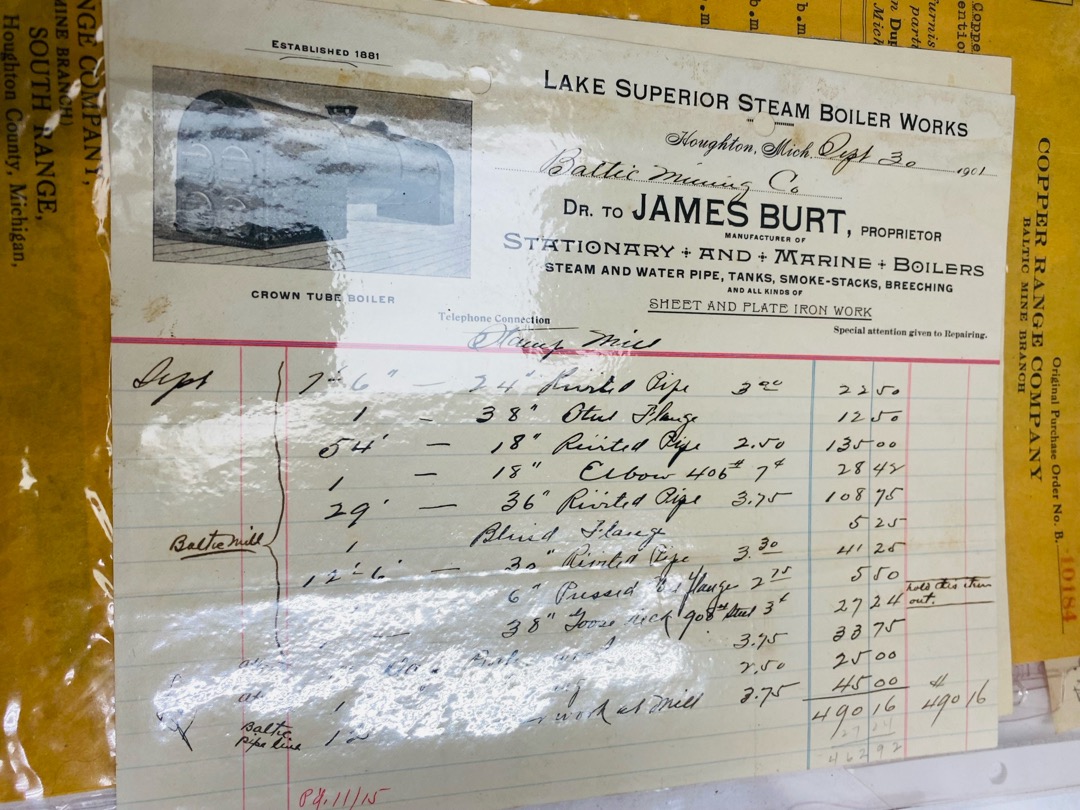 ESTABLISHED 1881
LAKE SUPERIOR STEAM BOILER WORKS
Houghton, Mich. Sept 30 1901
Baltic Mining Co
DR. TO JAMES BURT, PROPRIETOR
MANUFACTURER OF
STATIONARY + AND + MARINE + BOILERS
STEAM AND WATER PIPE, TANKS, SMOKE-STACKS, BREECHING
AND ALL KINDS OF
SHEET AND PLATE IRON WORK
CROWN TUBE BOILER
Telephone Connection
Special attention given to Repairing.
Stamp Mill
Sept 7'-6" — 24" Rivited Pipe 3.00 22 50
1 — 38" Flange 12 50
54' — 18" Rivited Pipe 2.50 135 00
1 — 18" Elbow 406# 7¢ 28 42
29' — 36" Rivited Pipe 3.75 108 75
1 Blind Flange 5 25
Baltic Mill
12'-6" 30" Rivited Pipe 3.30 41 25
6" Pressed flange 2.75 5 50
hold this item out.
38" Goose neck 908# Steel 3¢ 27 24
3.75 33 75
2.50 25 00
work at Mill 3.75 45 00
490 16 $ 490 16
27 24
462 92
Baltic pipe line
Pd. 11/15
NGE COMPANY,
MINE BRANCH)
SOUTH RANGE,
Houghton County, Michigan,
COPPER RANGE COMPANY
BALTIC MINE BRANCH
Original Purchase Order No. B.
10184
b.m
b.m